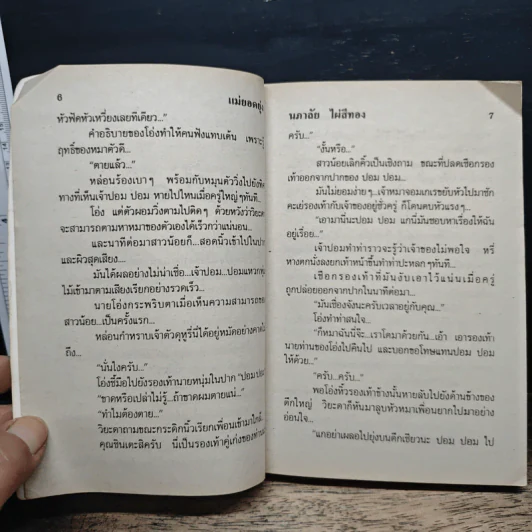 6
แม่ยอดยุ่ง
หัวฟัดหัวเหวี่ยงเลยทีเดียว..."
คำอธิบายของโฉ่งทำให้คนฟังแทบเต้น เพราะรู้
ฤทธิ์ของหมาตัวดี...
"ตายแล้ว..."
หล่อนร้องเบาๆ พร้อมกับหมุนตัววิ่งไปยัง
ทางที่เห็นเจ้าปอม ปอม หายไปไหนเมื่อครู่ใหญ่ๆทันที...
โฉ่ง แต่ตัวผอมวิ่งตามไปติดๆ ด้วยหวังว่าวิยะดา
จะสามารถตามหาหมาของตัวเองได้เร็วกว่าแน่นอน...
และนาทีต่อมาสาวน้อยก็...สอดนิ้วเข้าไปใน
และผิวสุดเสียง...
มันได้ผลอย่างไม่น่าเชื่อ...เจ้าปอม...ปอมแหวก
ไม้เข้ามาตามเสียงเรียกอย่างรวดเร็ว...
นายโฉ่งกระพริบตาเมื่อเห็นความสามารถของ
สาวน้อย...เป็นครั้งแรก...
หล่อนกำหราบเจ้าตัวดุหูรี่นี่ได้อยู่หมัดอย่างคาด
ถึง...
"นั่นไงครับ..."
โฉ่งชี้มือไปยังรองเท้านายหนุ่มในปาก "ปอม ปอม"
"ขาดหรือเปล่าไม่รู้...ถ้าขาดผมตายแน่..."
"ทำไมต้องตาย..."
วิยะดาถามขณะกระดิกนิ้วเรียกเพื่อนเข้ามาใกล้...
คุณชินเตะสิครับ นี่เป็นรองเท้าคู่เก่งของท่าน
นภาลัย ไผ่สีทอง
7
ครับ..."
"งั้นหรือ..."
สาวน้อยเลิกคิ้วเป็นเชิงถาม ขณะที่ปลดเชือกรอง
เท้าออกจากปากของ ปอม ปอม...
มันไม่ยอมง่ายๆ..เจ้าหมาจอมเกเรขยับหัวไปมาชัก
คะเย่อรองเท้ากับเจ้าของอยู่ชั่วครู่ ก็โดนตบหัวแรงๆ...
"เอามานี่นะปอม ปอม แกนี่มันชอบหาเรื่องให้ฉัน
อยู่เรื่อย..."
เจ้าปอมทำท่าราวจะรู้ว่าเจ้าของไม่พอใจ หรี่
หางตกนั่งลงยกเท้าหน้าขึ้นทำท่าปะหลกๆทันที...
เชือกรองเท้าที่มันงับเอาไว้แน่นเมื่อครู่
ถูกปล่อยออกจากปากในนาทีต่อมา...
"มันเชื่องจังนะครับเวลาอยู่กับคุณ..."
โฉ่งทำท่าสนใจ...
"ก็หมาฉันนี่จ๊ะ...เราโตมาด้วยกัน...เอ้า เอารองเท้า
นายท่านของโฉ่งไปคืนไป และบอกขอโทษแทนปอม ปอม
ให้ด้วย..."
"ครับ...ครับ..."
พอโฉ่งหิ้วรองเท้าข้างนั้นหายลับไปยังด้านข้างของ
ตึกใหญ่ วิยะดาก็หันมาลูบหัวหมาเพื่อนยากไปมาอย่าง
อ่อนใจ...
"แกอย่าเผลอไปยุ่งบนตึกเชียวนะ ปอม ปอม ไป